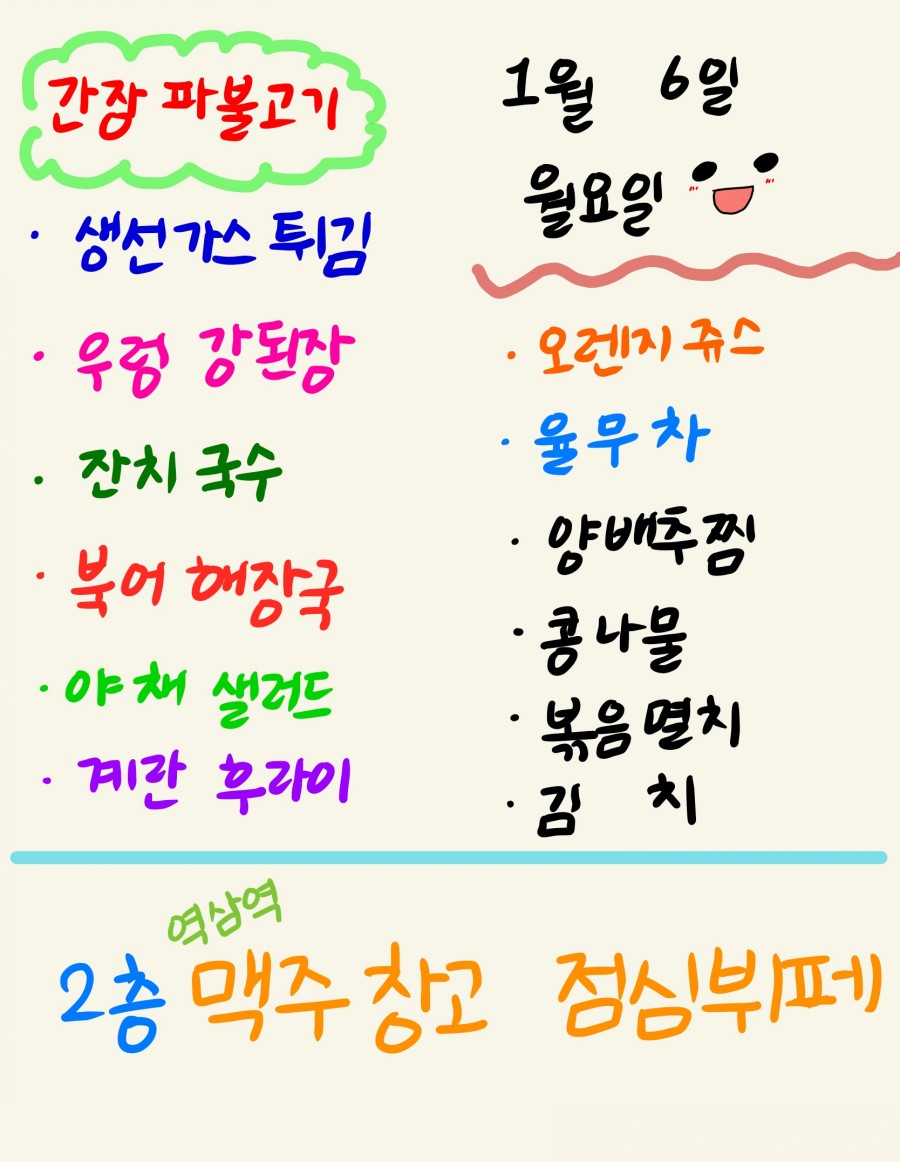 간장 파불고기
· 생선가스 튀김
· 우렁 강된장
· 잔치 국수
· 북어 해장국
· 야채 샐러드
· 계란 후라이
1월 6일
월요일
· 오렌지 쥬스
· 율무차
· 양배추찜
· 콩나물
· 볶음멸치
· 김 치
역삼역
2층 맥주창고 점심뷔페